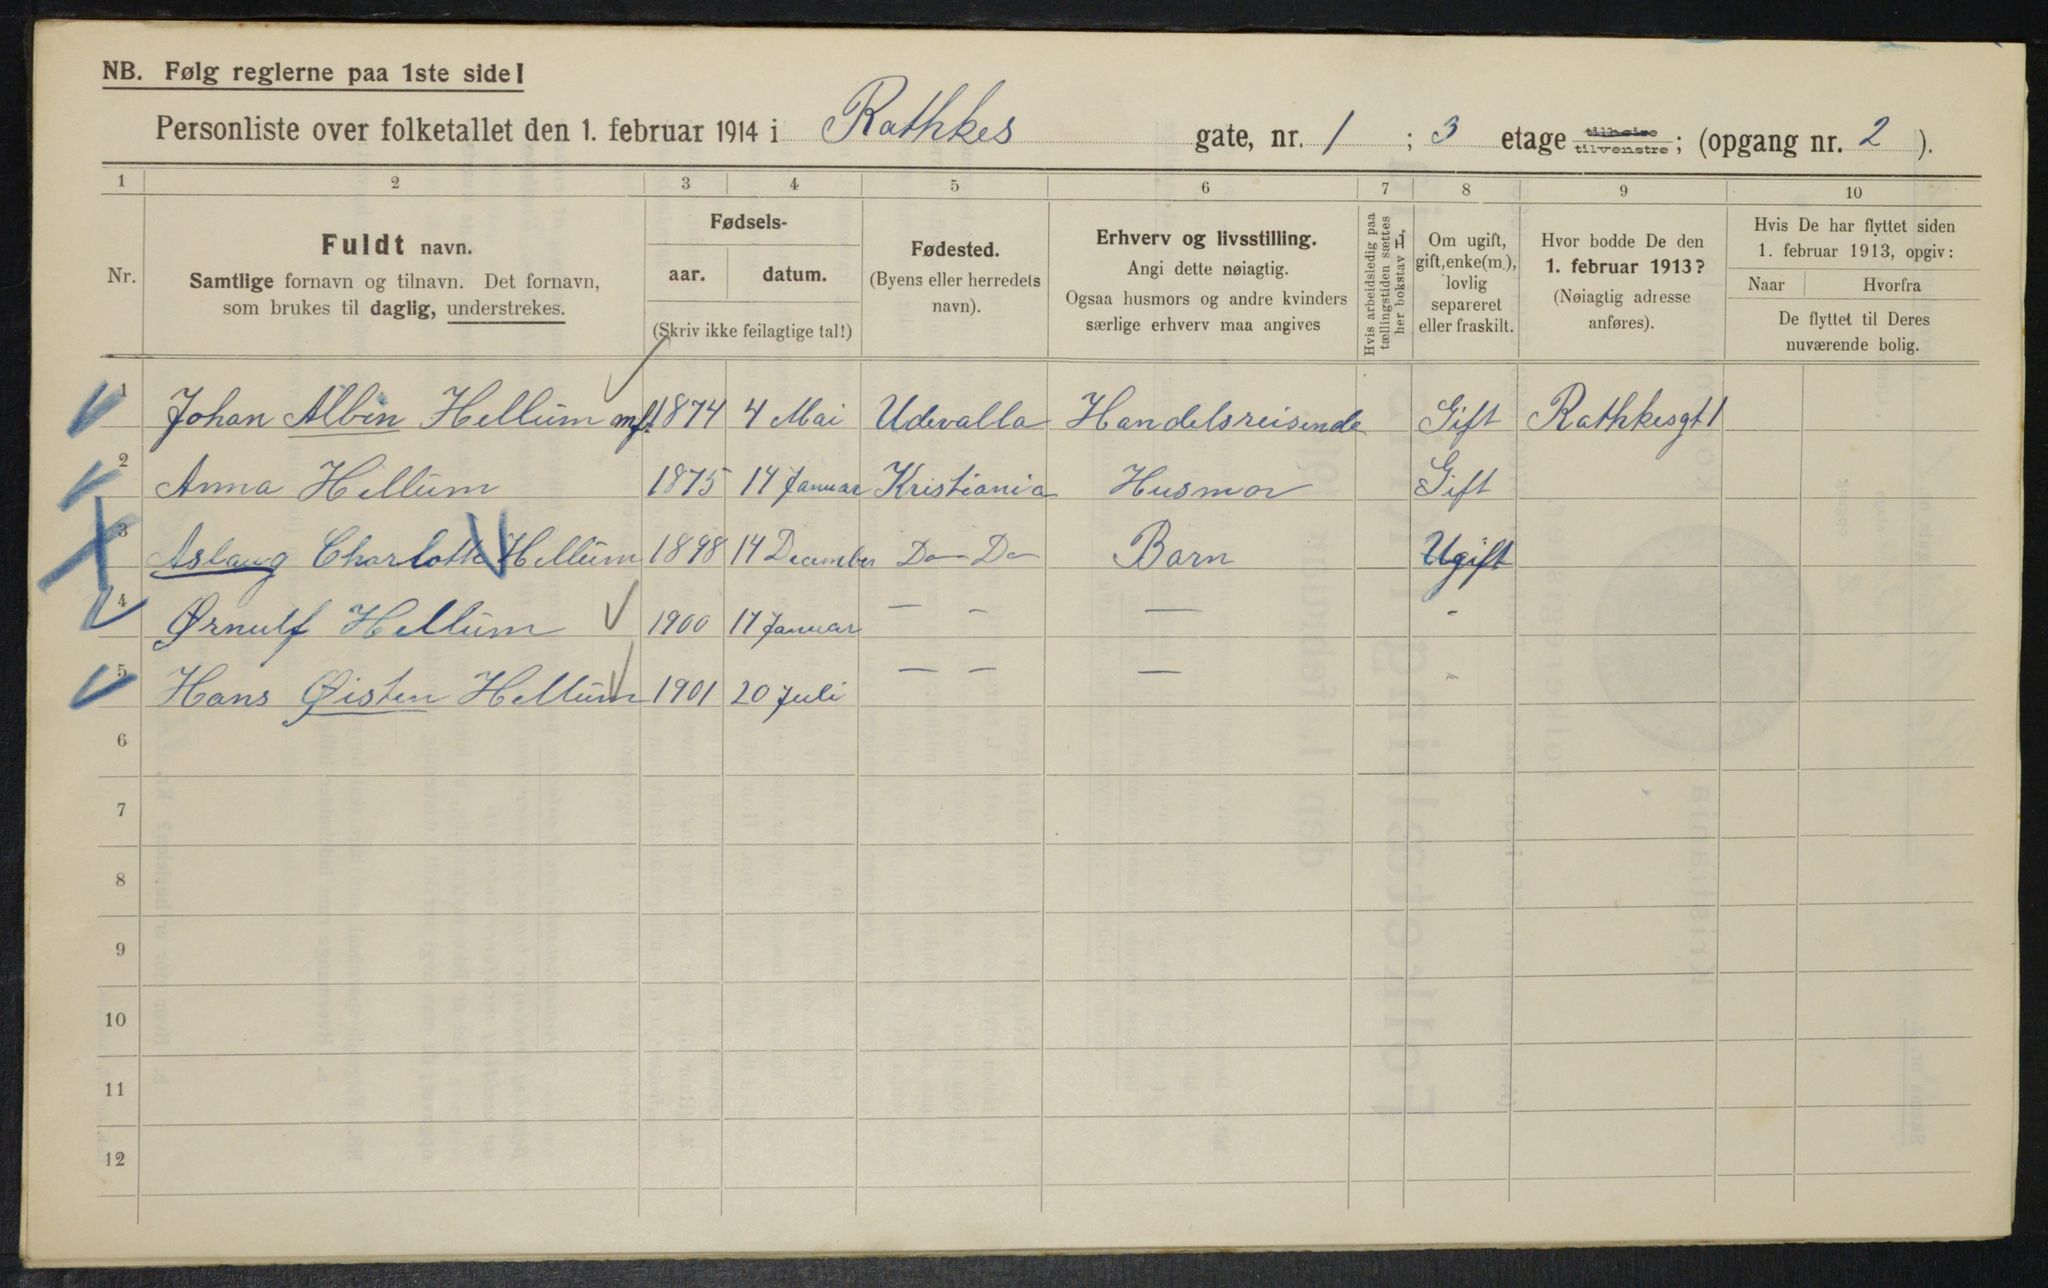 NB. Følg reglerne paa 1ste side!
Personliste over folketallet den 1. februar 1914 i Rathkes gate, nr. 1 ; 3 etage tilhøire tilvenstre; (opgang nr. 2 ).
1 2 3 4 5 6 7 8 9 10
Nr.
Fuldt navn.
Samtlige fornavn og tilnavn. Det fornavn,
som brukes til daglig, understrekes.
Fødsels-
aar. datum.
(Skriv ikke feilagtige tal!)
Fødested.
(Byens eller herredets
navn).
Erhverv og livsstilling.
Angi dette nøiagtig.
Ogsaa husmors og andre kvinders
særlige erhverv maa angives
Hvis arbeidsledig paa
tællingstiden sættes
her bokstav L.
Om ugift,
gift, enke(m.),
lovlig
separeret
eller fraskilt.
Hvor bodde De den
1. februar 1913?
(Nøiagtig adresse
anføres).
Hvis De har flyttet siden
1. februar 1913, opgiv:
Naar Hvorfra
De flyttet til Deres
nuværende bolig.
1 Johan Albin Hellum 1874 4 Mai Udevalla Handelsreisende Gift Rathkesgt 1
2 Anna Hellum 1875 14 Januar Kristiania Husmor Gift
3 Aslaug Charlotte Hellum 1898 14 December Do Do Barn Ugift
4 Ørnulf Hellum 1900 17 Januar — - — "
5 Hans Øisten Hellum 1901 20 Juli — — — "
6
7
8
9
10
11
12